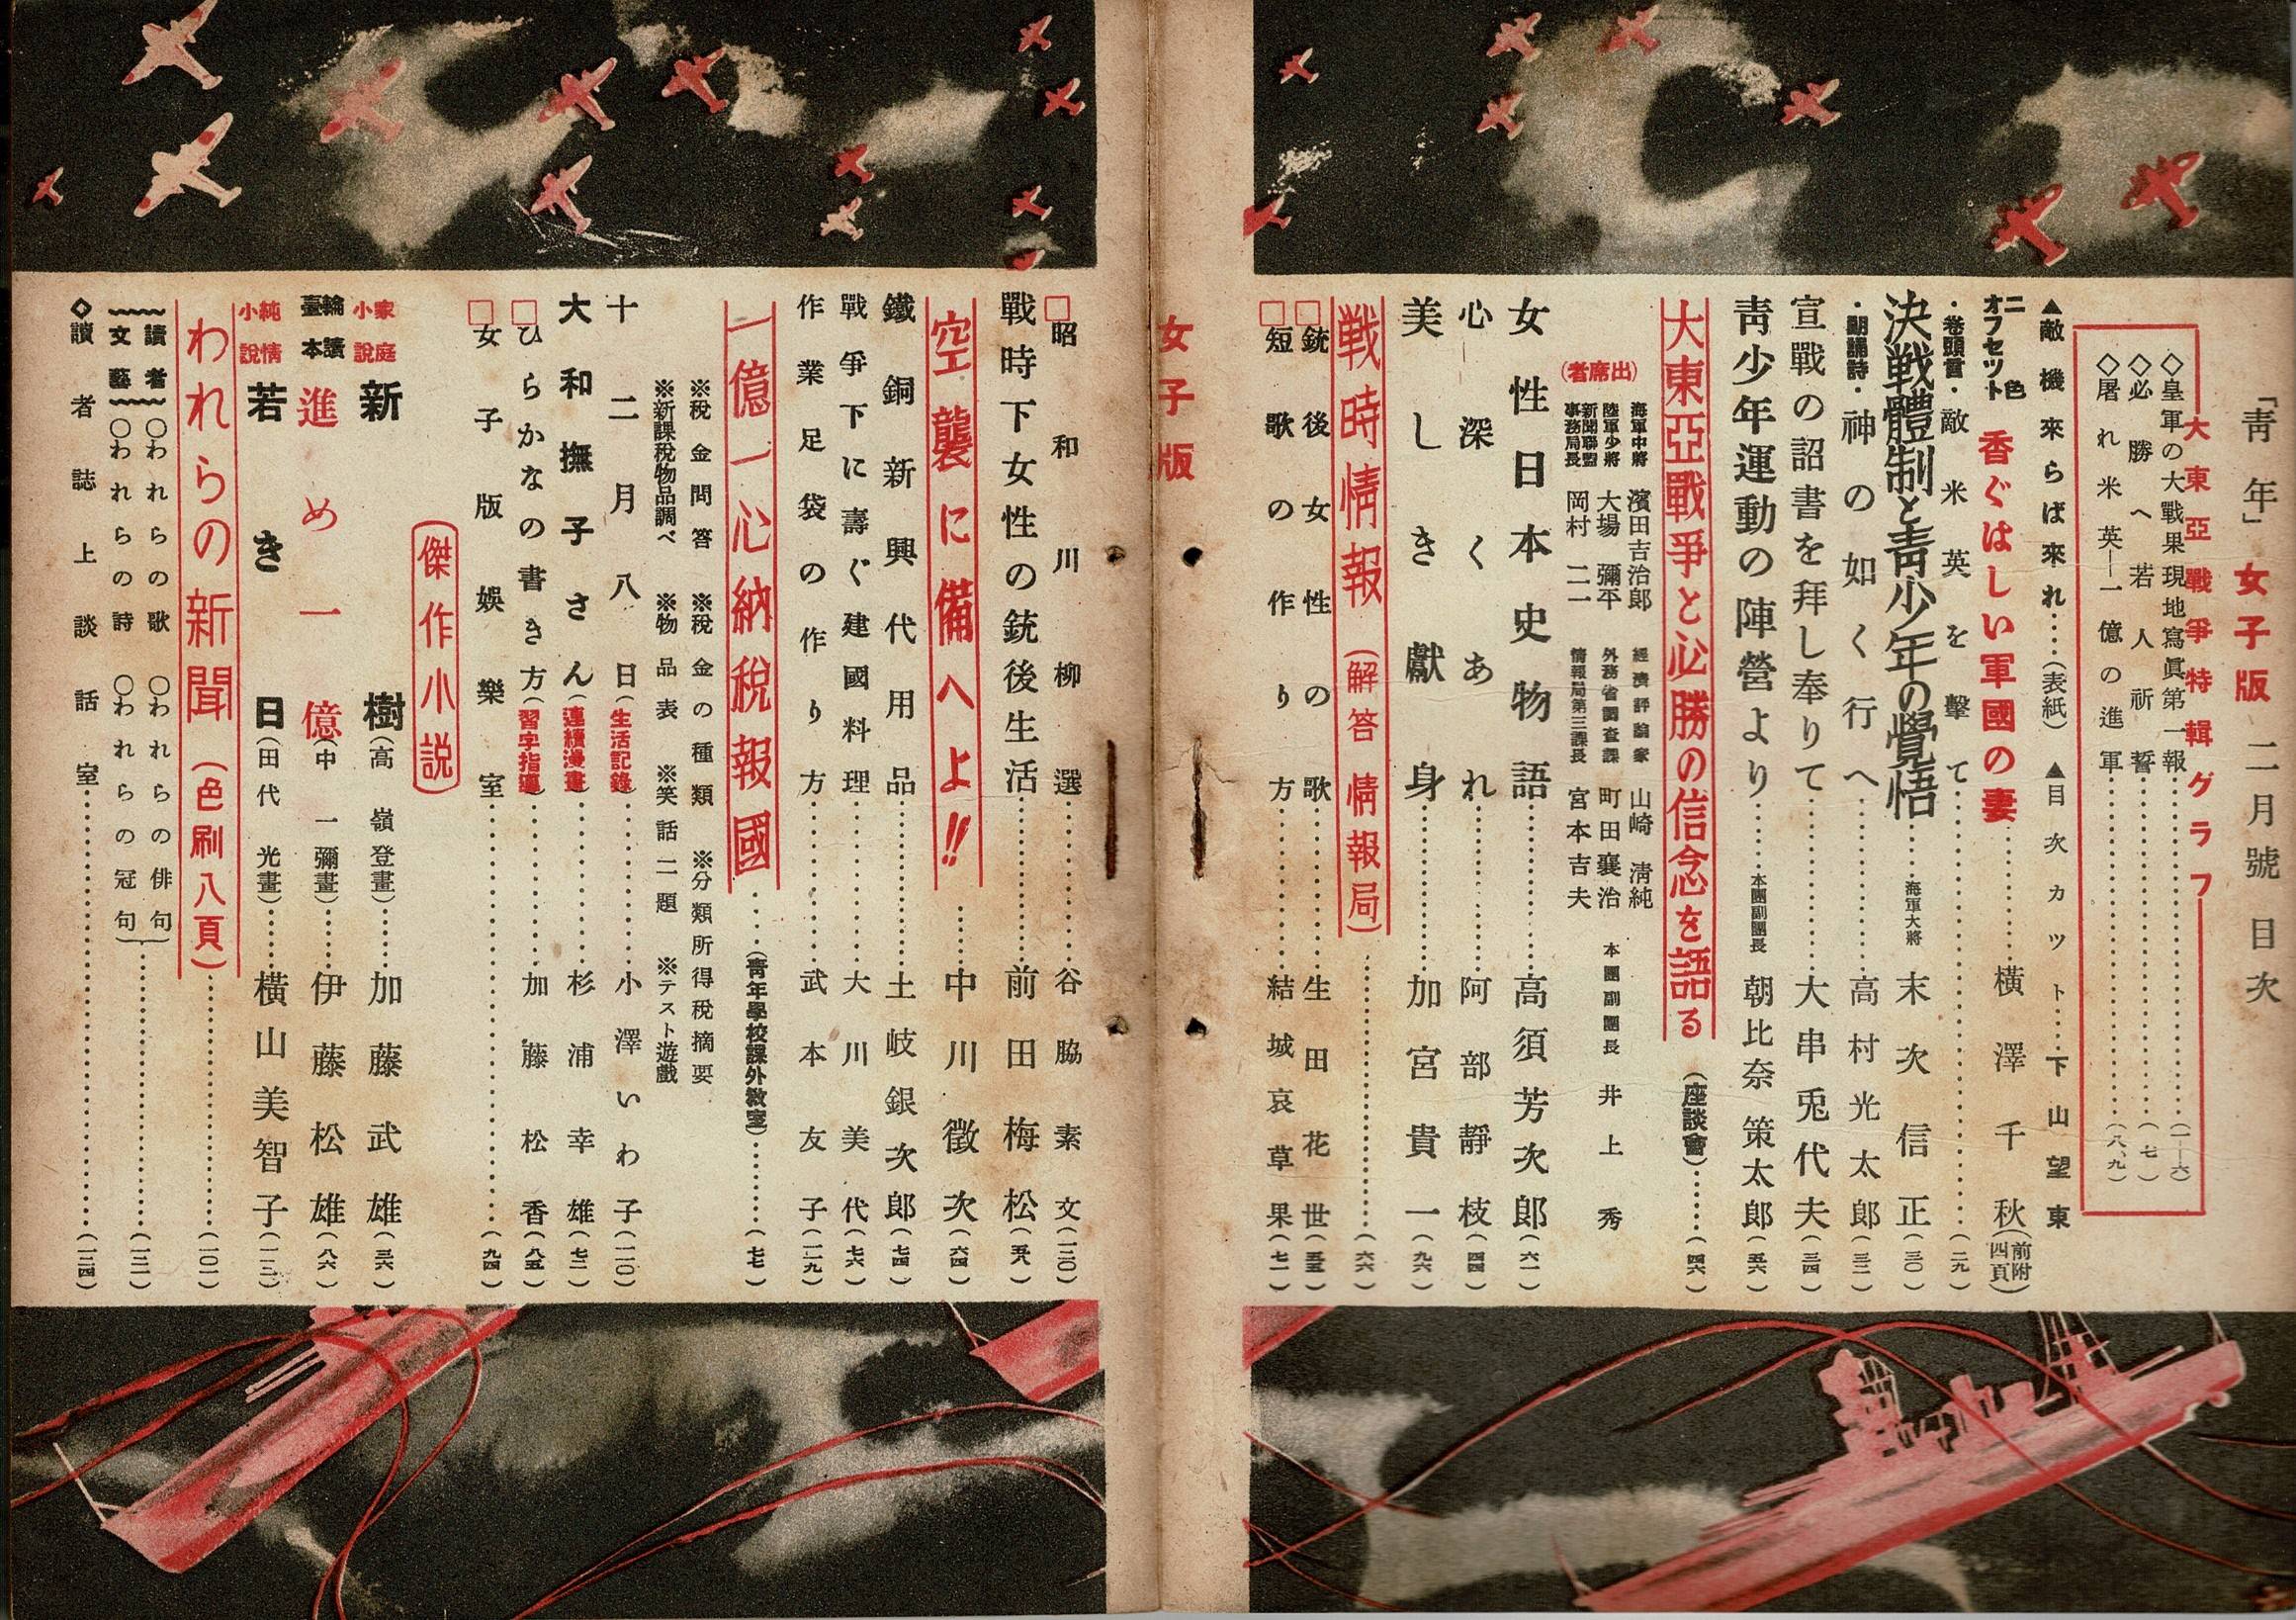 「靑年」女子版 二月號 目次
大東亞戰爭特輯グラフ
◇皇軍の大戰果現地寫眞第一報…(一—六)
◇必勝へ若人祈誓…(七)
◇屠れ米英—一億の進軍…(八、九)
▲敵機來らば來れ…(表紙) ▲目次カット…下山望東
二色オフセット 香ぐはしい軍國の妻…橫澤千秋(前附四頁)
・卷頭言・敵米英を擊て…(二九)
決戰體制と靑少年の覺悟…海軍大將 末次信正(三〇)
・朗誦詩・神の如く行へ…高村光太郎(三二)
宣戰の詔書を拜し奉りて…大串兎代夫(三四)
靑少年運動の陣營より…本團副團長 朝比奈策太郎(五六)
大東亞戰爭と必勝の信念を語る(座談會)…(四六)
(出席者)
海軍中將 濱田吉治郎 經濟評論家 山崎淸純
陸軍少將 大場彌平 外務省調査課 町田襄治 本團副團長 井上秀
新聞聯盟事務局長 岡村二一 情報局第三課長 宮本吉夫
女性日本史物語…高須芳次郎(六一)
心深くあれ…阿部靜枝(四四)
美しき獻身…加宮貴一(九六)
戰時情報(解答 情報局)…(六六)
□銃後女性の歌…生田花世(五五)
□短歌の作り方…結城哀草果(七一)
女子版
□昭和川柳選…谷脇素文(一三〇)
戰時下女性の銃後生活…前田梅松(五八)
空襲に備へよ!!…中川徵次(六四)
鐵銅新興代用品…土岐銀次郎(七四)
戰爭下に壽ぐ建國料理…大川美代(七六)
作業足袋の作り方…武本友子(一一九)
一億一心納稅報國…(靑年學校課外敎室)…(七七)
※稅金問答 ※稅金の種類 ※分類所得稅摘要
※新課稅物品調べ ※物品表 ※笑話二題 ※テスト遊戲
十二月八日(生活記錄)…小澤いわ子(一一〇)
大和撫子さん(連續漫畫)…杉浦幸雄(七二)
□ひらかなの書き方(習字指導)…加藤松香(八五)
□女子版娛樂室…(九四)
傑作小説
家庭小說 新樹(高嶺登畫)…加藤武雄(三六)
輪讀臺本 進め一億(中一彌畫)…伊藤松雄(八六)
純情小說 若き日(田代光畫)…橫山美智子(一一二)
われらの新聞(色刷八頁)…(一〇一)
讀者 〇われらの歌 〇われらの俳句
文藝 〇われらの詩 〇われらの冠句…(一二二)
◇讀者誌上談話室…(一二四)